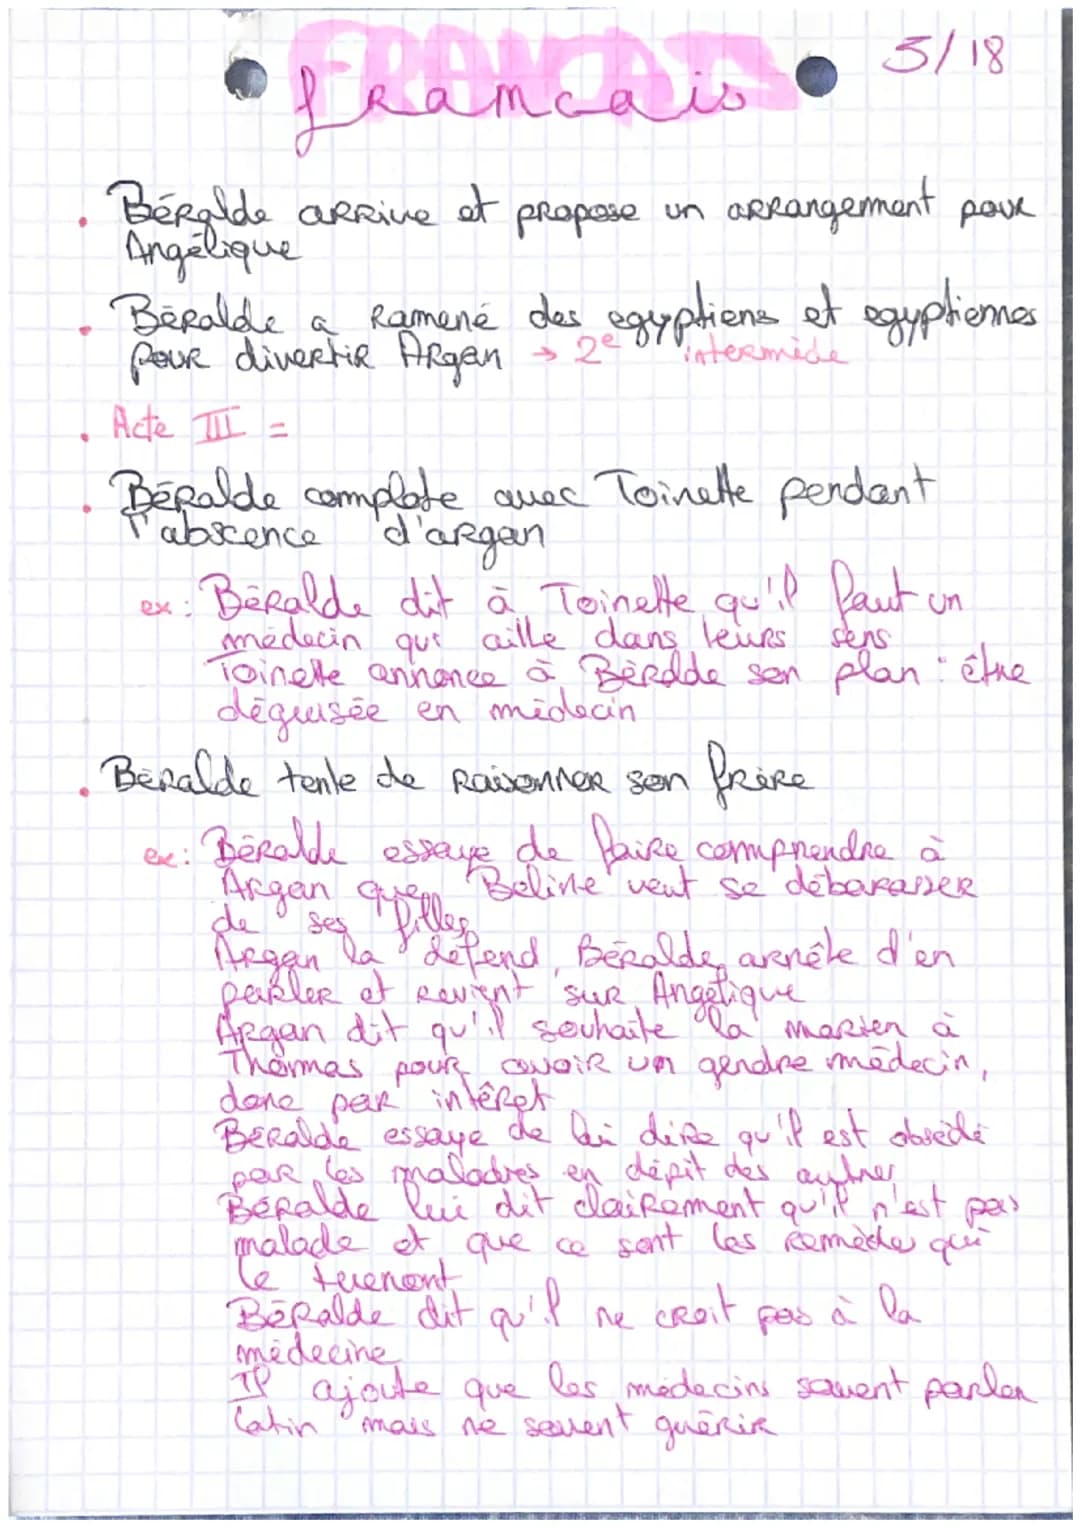 FRANCAIS
francais
5/18
. Béralde arrive et propose un arrangement pour
Angélique
. Béralde a ramené des egyptiens et egyptiennes
pour divertir Argan → 2e intermède
. Acte III =
. Béralde complote avec Toinette pendant
l'abscence d'argan
ex : Béralde dit à Toinette qu'il faut un
médecin qui aille dans leurs sens
Toinette annonce à Béralde son plan : être
déguisée en médecin
. Béralde tente de raisonner son frère
ex : Béralde essaye de faire comprendre à
Argan que Beline veut se débarasser
de ses filles
Argan la défend, Béralde arrête d'en
parler et revient sur Angélique
Argan dit qu'il souhaite la marier à
Thomas pour avoir un gendre médecin,
donc par intérêt
Béralde essaye de lui dire qu'il est obsédé
par les maladies en dépit des autres
Béralde lui dit clairement qu'il n'est pas
malade et que ce sont les remède qui
le tueront
Béralde dit qu'il ne croit pas à la
médecine
Il ajoute que les médecins savent parler
latin mais ne savent guérir